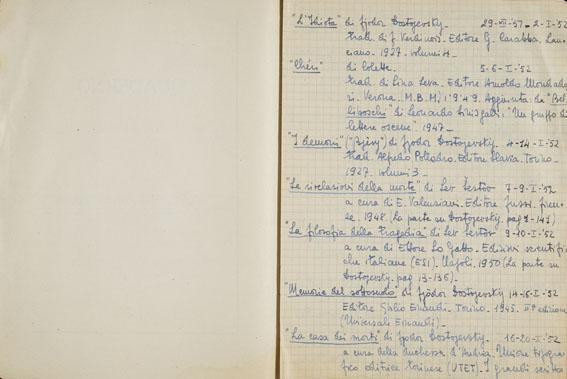 "L'Idiota" di Fjodor Dostojevsky. 29-XII-'51 - 2-I-'52
trad. di F. Verdinois. Editore G. Carabba. Lan-
ciano. 1927. volumi 4.
"Chéri" di Colette. 5-6-I-'52
trad. di Lina Seva. Editore Arnoldo Mondado-
ri. Verona. M.B.M. 1949. Aggiunta: da "Bel
di Leonardo Sinisgalli: "Un gruppo di
lettere oscene". 1947.
"I demoni" ("Bjèsy") di Fjodor Dostojevsky. 4-14-I-'52
trad. Alfredo Polledro. Editore Slavia. Torino.
1927. volumi 3.
"Le rivelazioni della morte" di Lev Šestòv 7-9-I-'52
a cura di E. Valenziani. Editore Fussi. Firen-
ze. 1948. (La parte su Dostojevsky. pag. 9-141)
"La filosofia della tragedia" di Lev Šestòv 9-10-I-'52
a cura di Ettore Lo Gatto. Edizioni scientifi-
che italiane (ESI). Napoli. 1950 (La parte su
Dostojevsky. pag. 13-136).
"Memorie del sottosuolo" di Fjòdor Dostojevsky 14-16-I-'52
Editore Giulio Einaudi. Torino. 1945. IIª edizione
(Universale Einaudi).
"La casa dei morti" di Fjodor Dostojevsky. 16-20-I-'52
a cura della duchessa d'Andria. Unione Tipogra-
fico editrice torinese (UTET). I grandi scritto